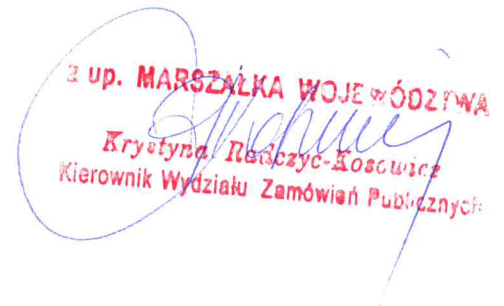 z up. MARSZAŁKA WOJEWÓDZTWA
Krystyna
Kierownik Wydziału Zamówień Publicznych